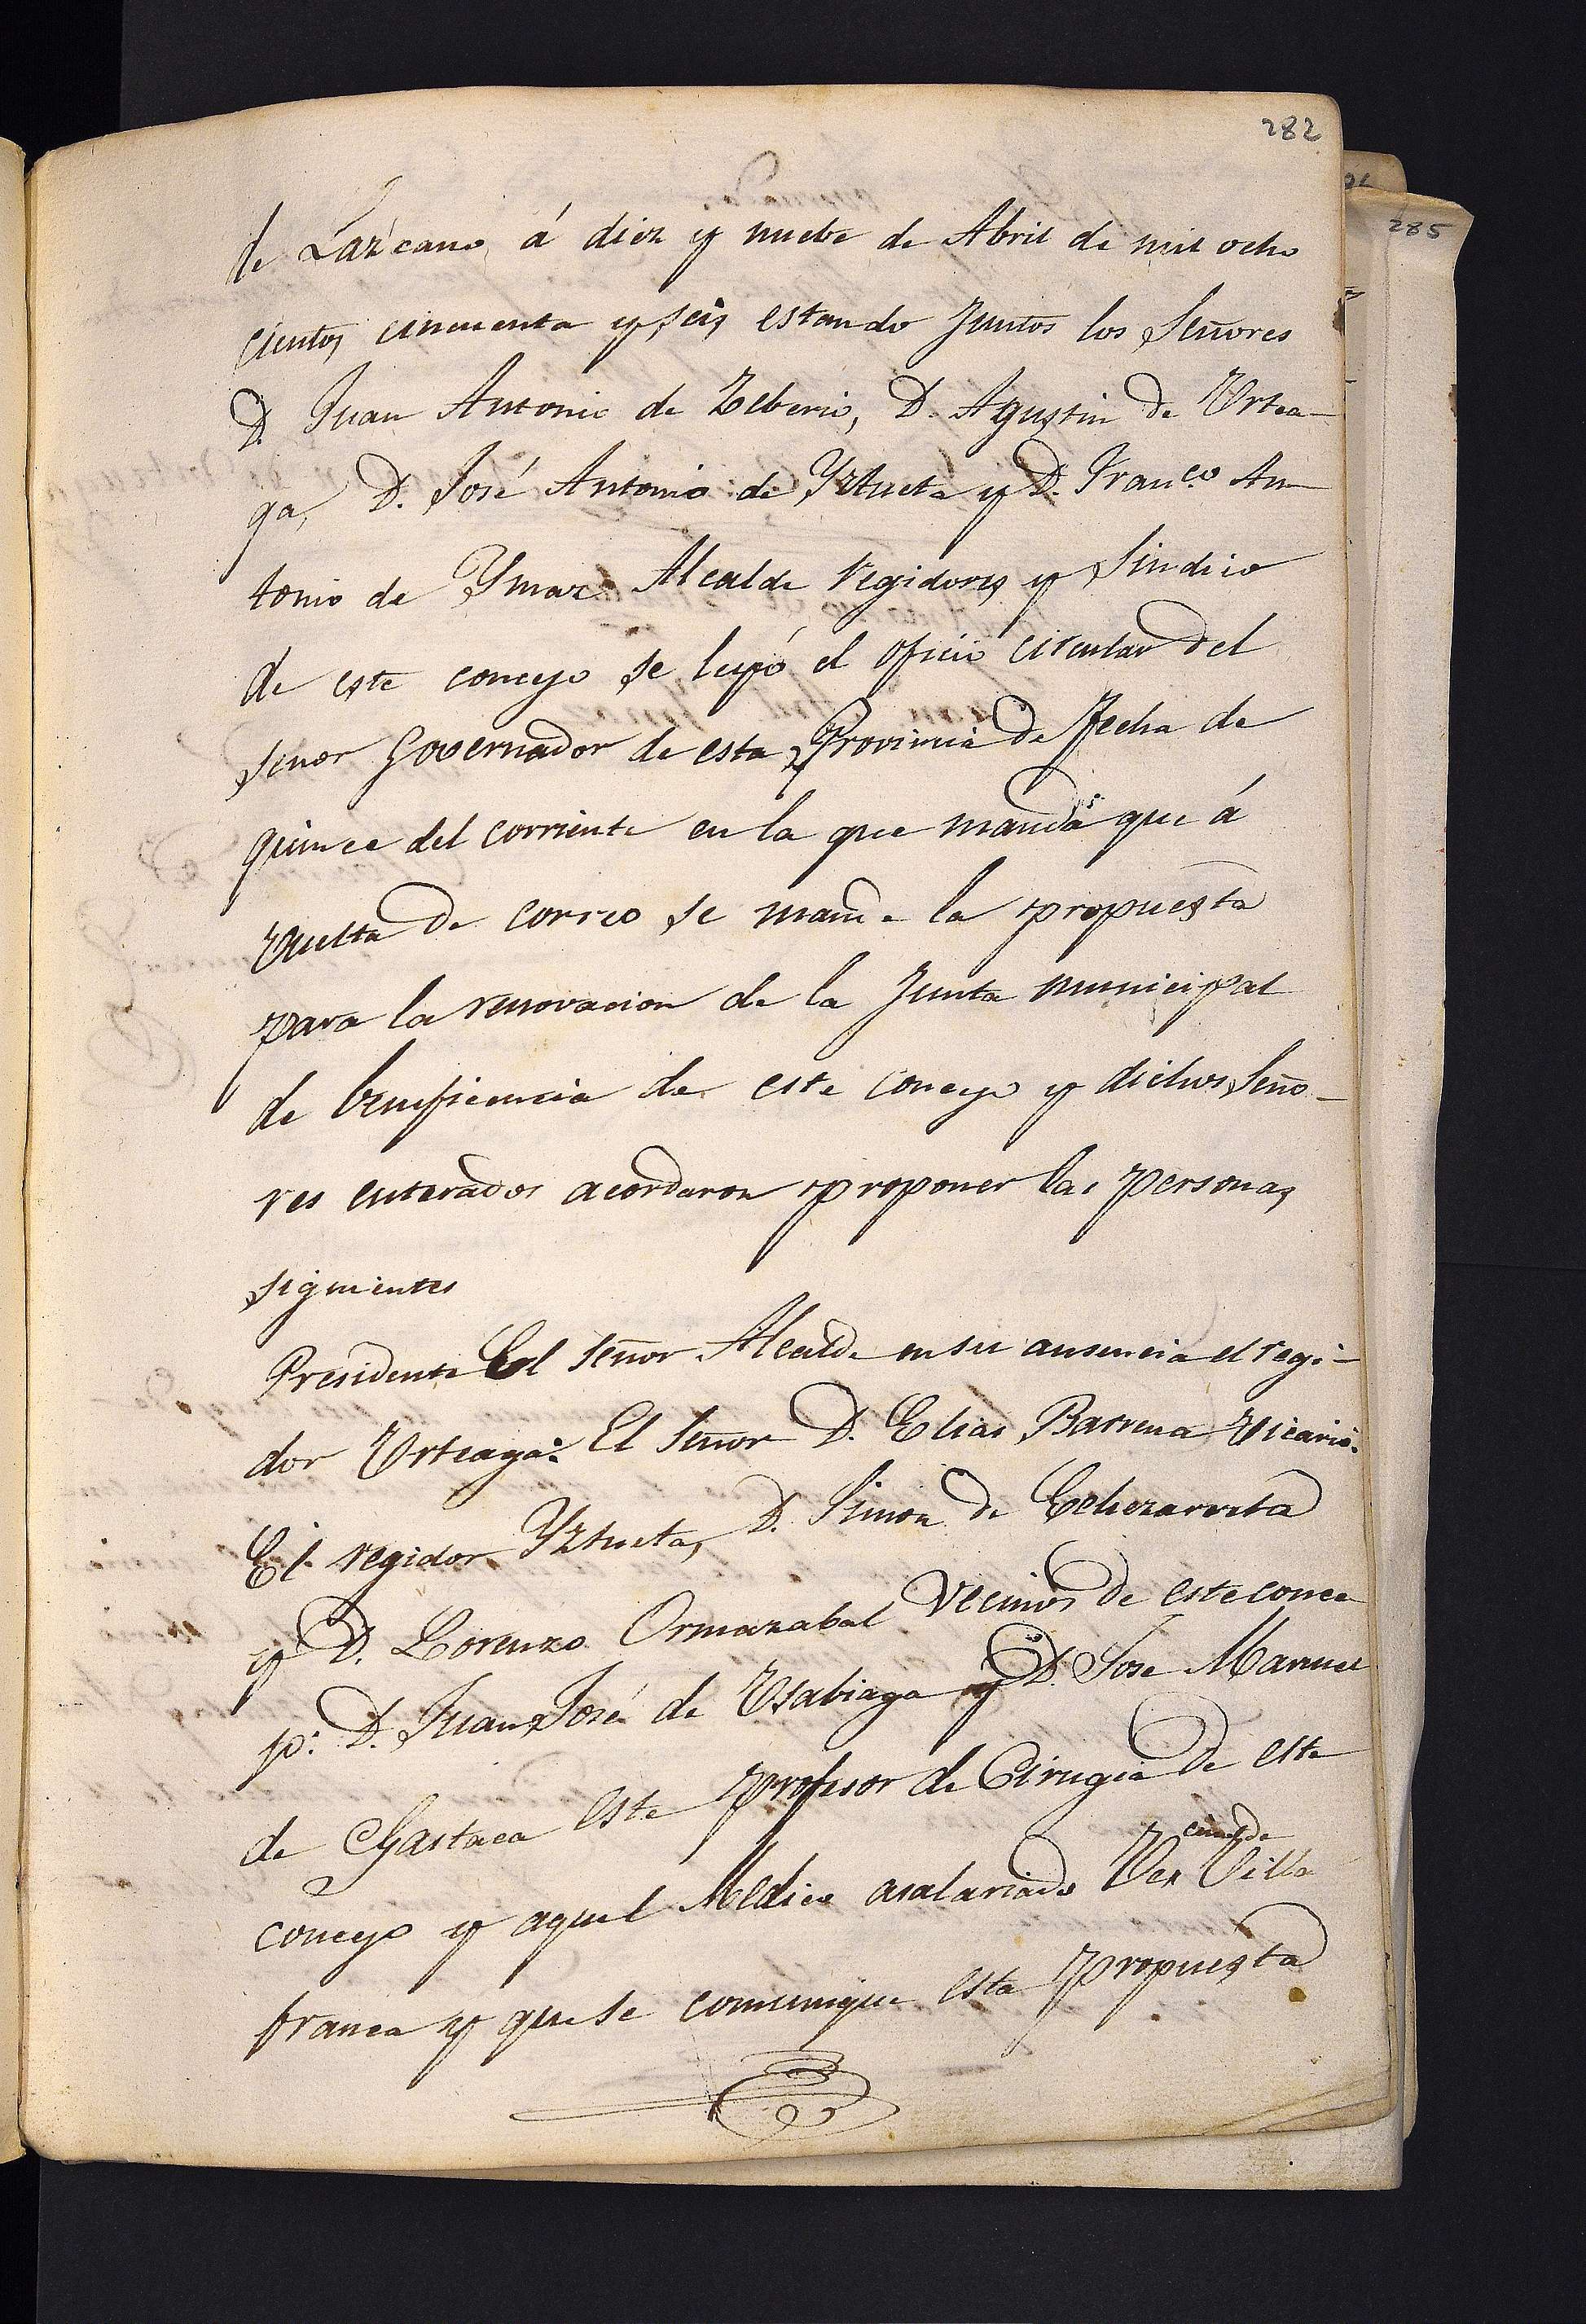 282
285
de Lazcano, á diez y nuebe de Abril de mil ocho
cientos cincuenta y seis estando Juntos los Señores
D. Juan Antonio de Zeberio, D. Agustin de Urtea-
ga, D. José Antonio de Yztueta y D. Franco. An
tonio de Ymaz Alcalde regidores y Sindico
de este concejo se leyó el oficio circular del
señor Governador de esta Provincia de fecha de
quince del corriente en la que manda que á
vuelta de correo se mande la propuesta
para la renovacion de la Junta municipal
de beneficencia de este concejo y dichos Seño-
res enterados acordaron proponer las personas
siguientes
Presidente El señor Alcalde en su ausencia el regi-
dor Urteaga: El Señor D. Elias Barrena Vicario:
El regidor Yztueta, D. Simon de Echezarreta
y D. Lorenzo Ormazabal Vecinos de este conce
jo: D. Juan José de Usabiaga y D. Jose Manuel
de Gastaca este profesor de Cirugia de este
concejo y aquel Medico asalariado Villa
franca y que se comunique esta propuesta